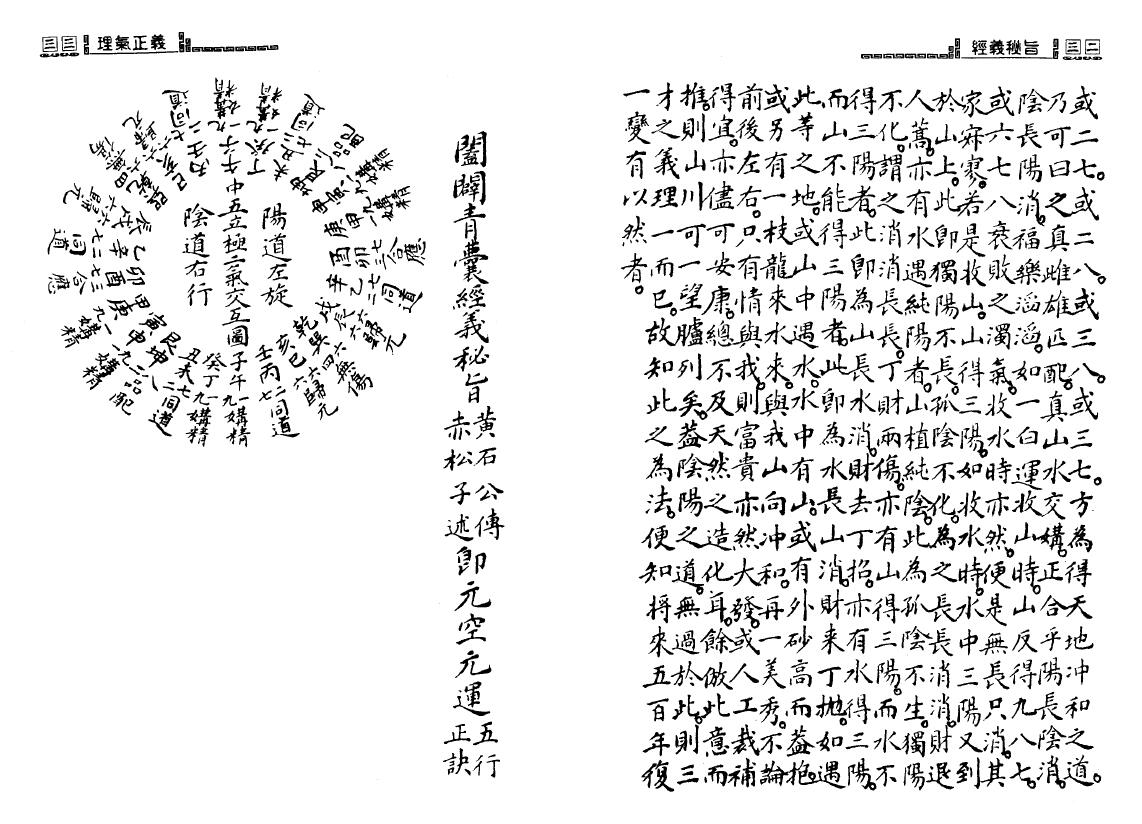 經義秘旨 三二
或二七。或二八。或三八。或三七。方為得天地冲和之道。
乃可曰之真雌雄匹配。真山水交媾。正合乎陽長陰消。
陰長陽消。福樂滔滔。如一白運收山時。山反得九八七。
或六七八衰敗之濁氣。收水時亦然。便是無長只消。其
家寂寥。若是收山。山得三陽。如收水時。水中三陽又到
於山上。此即獨陽不長。孤陰不化。為之長長消消。財退
人蒿。亦有水遇純陽者。山植純陰。此為孤陰不生。獨陽
不化。謂之消消長長。丁財兩傷。亦有山得三陽。而水不
得三陽者。此即為山長水消。財去丁招。亦有水得三陽。
而山不能得三陽者。此即為水長山消。財來丁拋。如遇
此等之地。或山中遇水。水中有山。或有外砂高而蓋抱。
或另有一枝龍來水來。與我山向冲和。再一美秀。不論
前後左右。只有情與我則富貴亦然大發。或人工裁補
得宜。亦儘可安康。總不及天然之造化耳。餘倣此。意而
推則山川可一望臚列矣。蓋陰陽之道。無過於此。則三
才之義理一而已。故知此之為法。便知將來五百年復
一變有以然者。
三三 理氣正義
闔闢青囊經義秘旨
黃石公傳
赤松子述
即元空元運
五行
正訣
陽道左旋
中五立極二氣交互圖
陰道右行
午子一九媾精
丁癸九一媾精
未丑七二同道
坤艮二八品配
申寅九一媾精
庚甲一九媾精
酉卯七三合應
辛乙二七同道
戌辰六六歸元
乾巽六四無傷
亥巳六六歸元
壬丙二七同道
子午一九媾精
癸丁九一媾精
丑未七二同道
艮坤八二品配
寅申一九媾精
甲庚九一媾精
卯酉三七合應
乙辛七二同道
辰戌六六歸元
巽乾四六無傷
巳亥六六歸元
丙壬七二同道